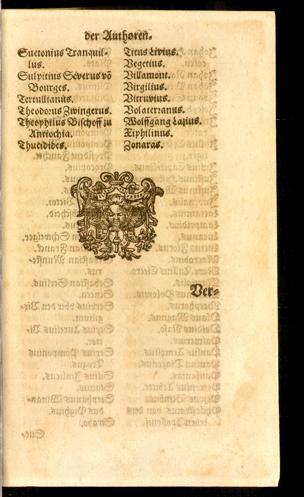 der Authoren.
Suetonius Tranquil-
lus.
Sulpitius Severus võ
Bourges.
Tertullianus.
Theodorus Zwingerus.
Theophilus Bischoff zu
Antiochia.
Thucidides.
Titus Livius.
Vegetius.
Villamont.
Virgilius.
Vitruvius.
Volaterranus.
Wolffgang Lazius.
Xiphilinus.
Zonaras.
Ver-